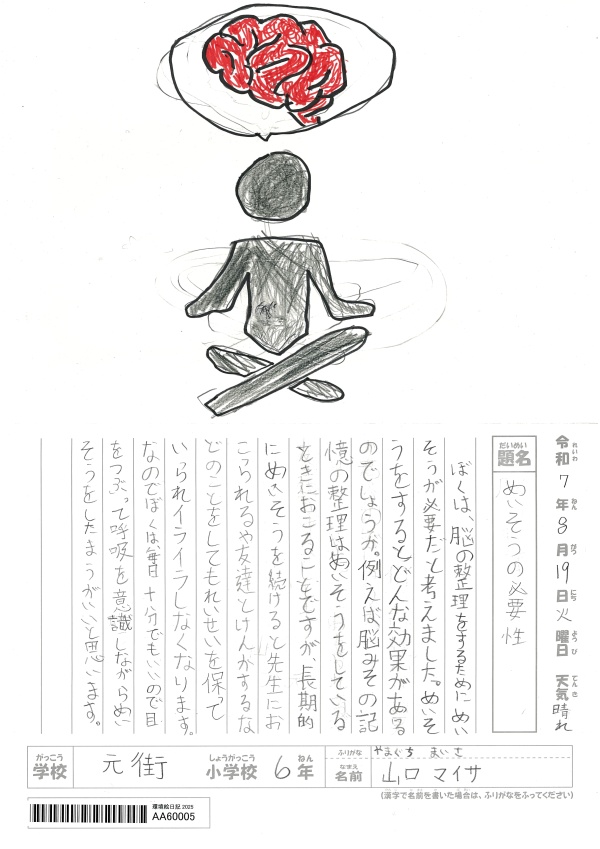 令和7年8月19日火曜日 天気晴れ
れいわ ねん がつ にち ようび てんき
だいめい
題名
めいそうの必要性
ぼくは、脳の整理をするためにめい
そうが必要だと考えました。めいそ
うをするとどんな効果がある
のでしょうか。例えば脳みその記
憶の整理はめいそうをしている
ときにおこることですが、長期的
にめいそうを続けると先生にお
こられるや友達とけんかするな
どのことをしてもれいせいを保って
いられイライラしなくなります。
なのでぼくは毎日十分でもいいので目
をつぶって呼吸を意識しながらめい
そうをしたほうがいいと思います。
がっこう
学校
元街
しょうがっこう
小学校
6年
ねん
ふりがな
やまぐち まいさ
なまえ
名前
山口 マイサ
(漢字で名前を書いた場合は、ふりがなをふってください)
環境絵日記 2025
AA60005